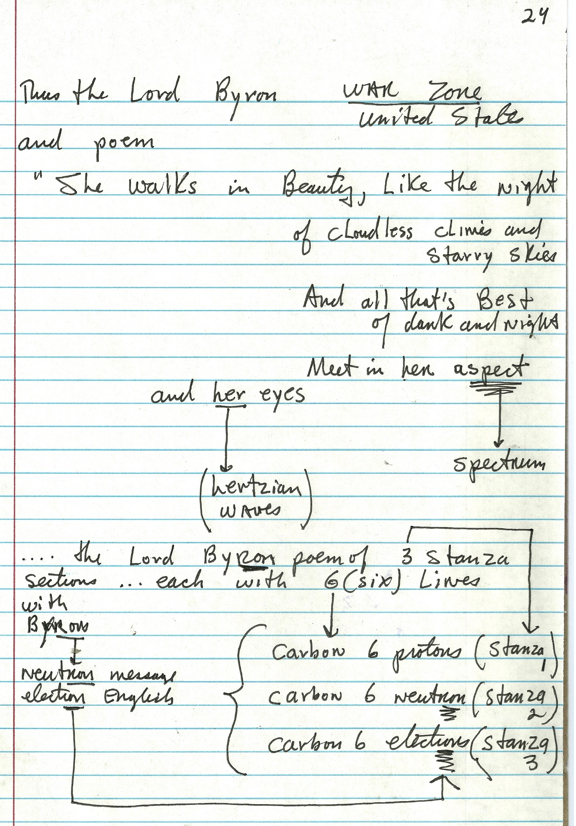 24
Thus the Lord Byron WAR Zone
United States
and poem
"She walks in Beauty, Like the Night
of cloudless climes and
starry skies
And all that's Best
of dark and Night
Meet in her aspect
and her eyes
spectrum
(hertzian
waves)
.... the Lord Byron poem of 3 stanza
sections ... each with 6 (six) Lines
with
Byrons
Carbon 6 protons (Stanza
1)
Neutron message
election English
carbon 6 neutron (Stanza
2)
carbon 6 elections (Stanza
3)